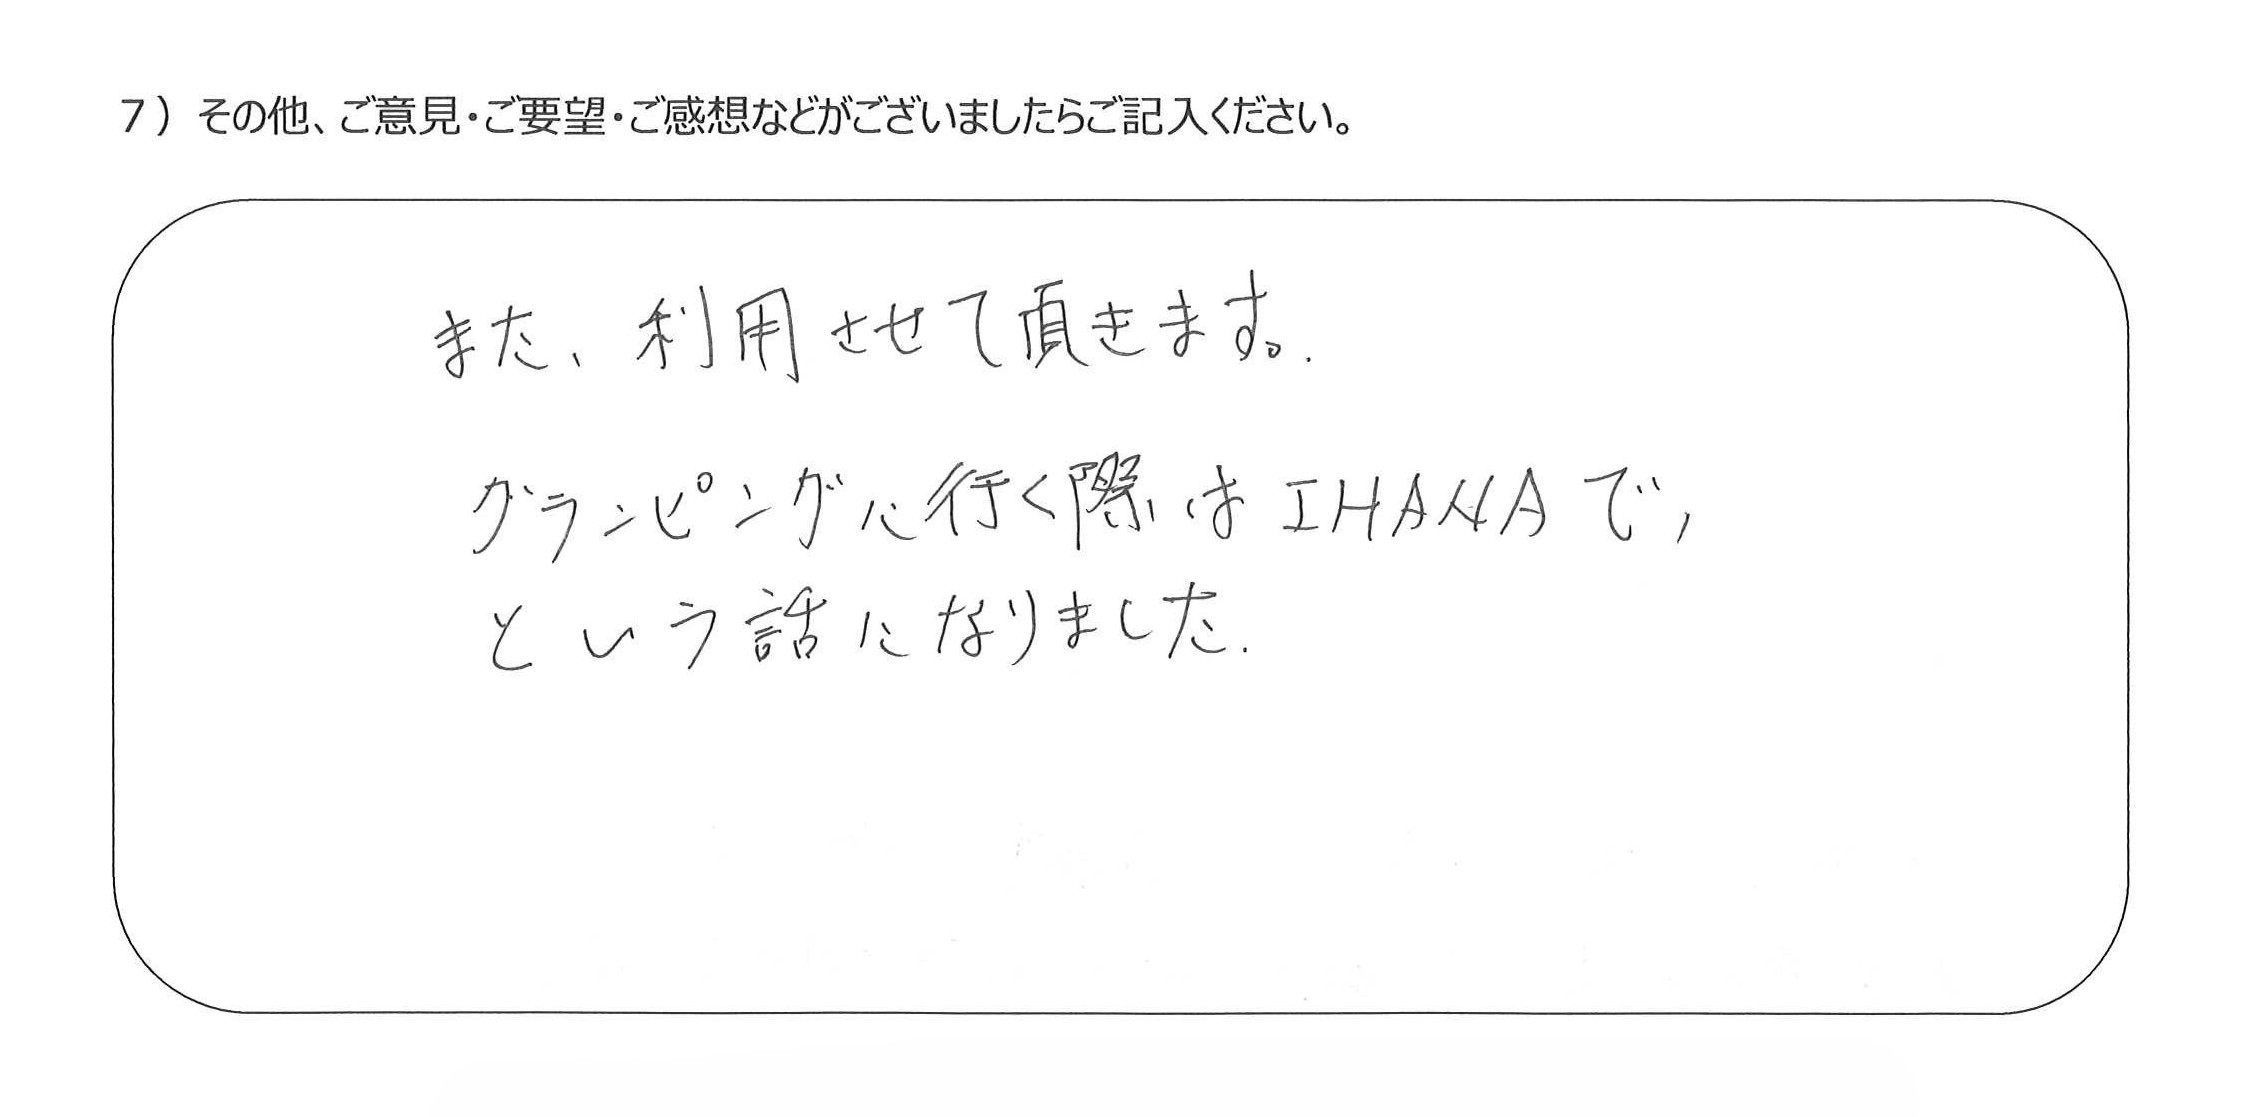 7）その他、ご意見・ご要望・ご感想などがございましたらご記入ください。
また、利用させて頂きます。
グランピングに行く際はIHANAで,
という話になりました.